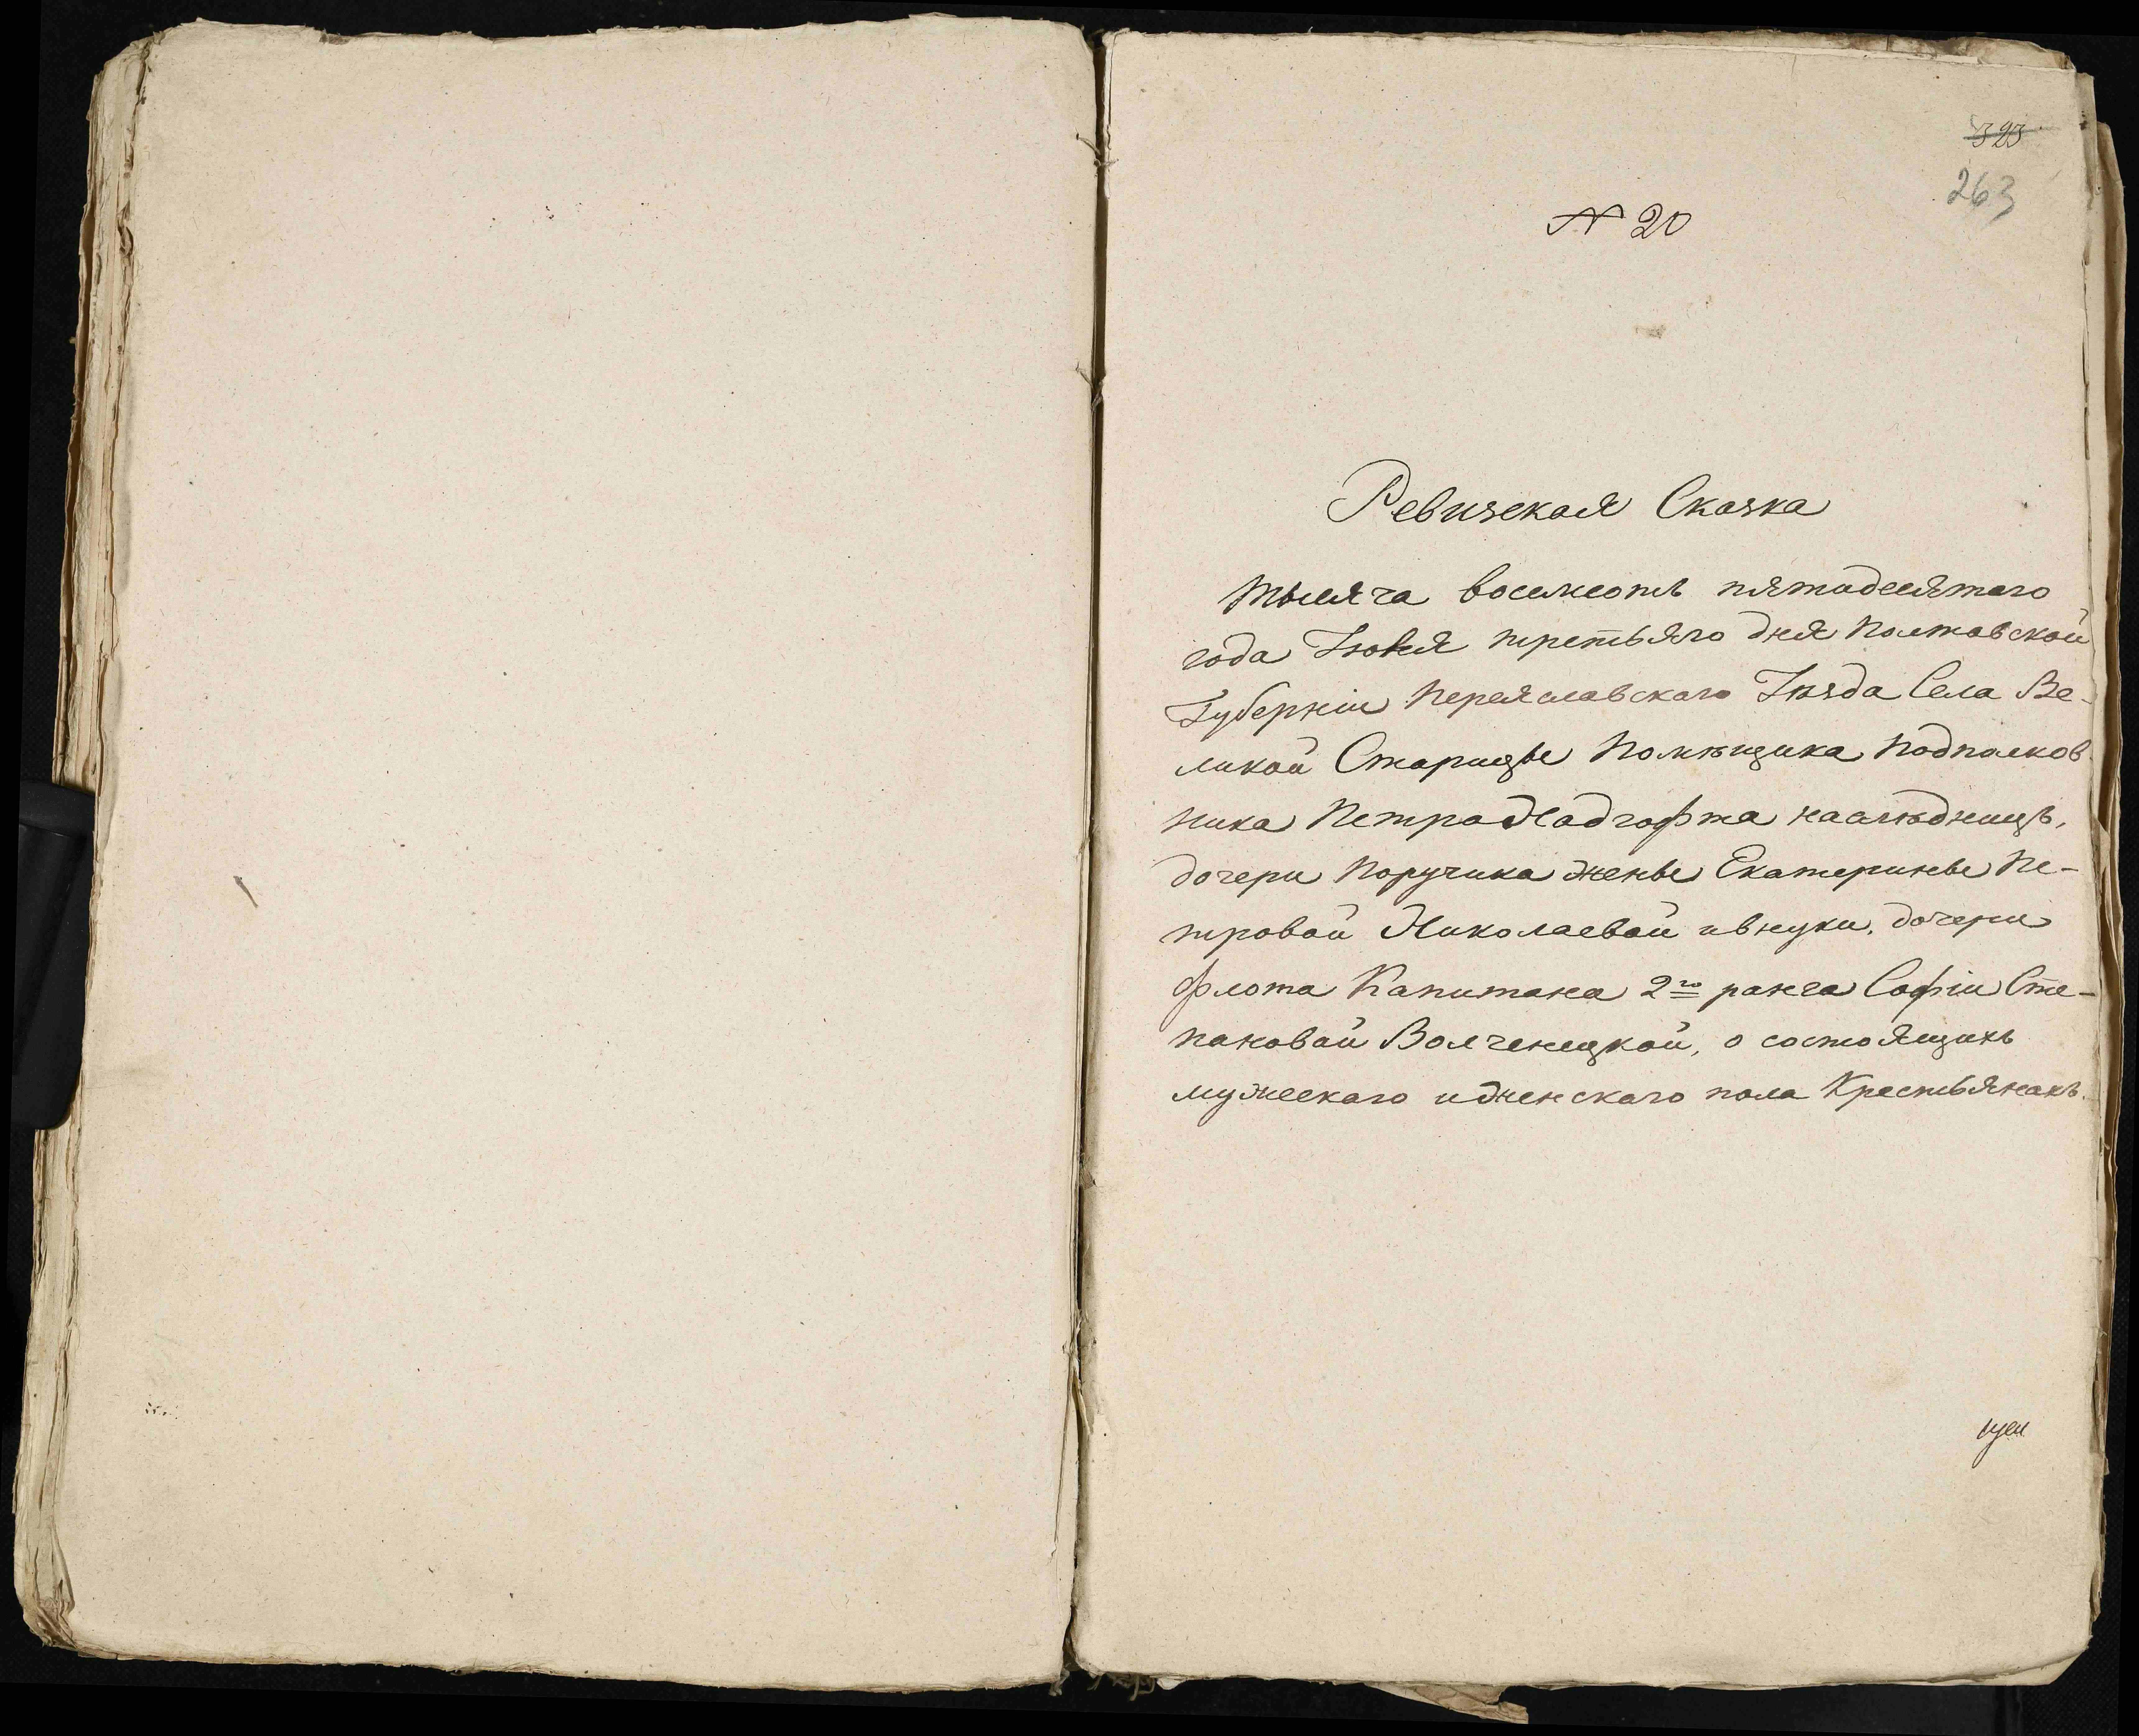 323
263
N 20
Ревизская Сказка
Тысяча восемсотъ пятидесятаго
года Іюня третьяго дня Полтавской
Губерніи Переяславскаго Уѣзда Села Ве-
ликой Старицы Помѣщика Подполков
ника Петра Надгофта наслѣдницъ,
дочери Поручика жены Екатерины Пе-
тровой Николаевой и внуки, дочери
Флота Капитана 2го ранга Софіи Сте-
пановой Волченецкой, о состоящихъ
мужескаго и женскаго пола Крестьянахъ.